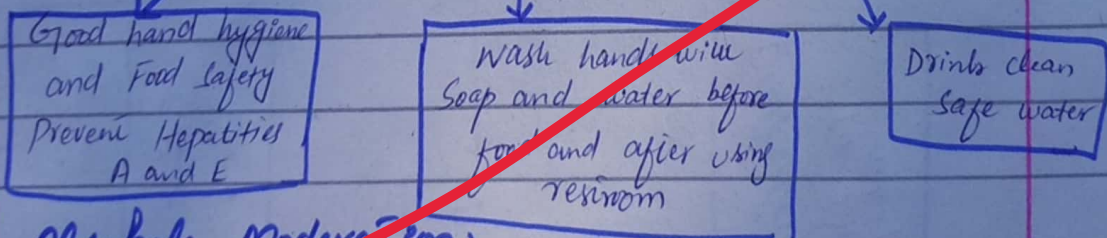 Good hand hygiene
and Food Safety
Prevent Hepatities
A and E
Wash hands with
Soap and water before
food and after using
restroom
Drink clean
safe water